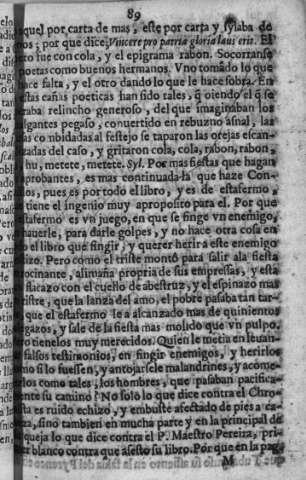 89
aquel por carta de mas, este por carta y sylaba de
nos; por que dice, Vincere pro patria gloria laus erit. El
ero fue con cola, y el epigrama rabon. Socorranse
poetas como buenos hermanos. Vno tomado lo que
hace falta, y el otro dando lo que le hace sobra. En
estas cañas poeticas han sido tales, q̃ oiendo el q̃ se
eraba relincho generoso, del que imaginaban los
algantes pegaso, conuertido en rebuzno asnal, las
as combidadas al festejo se taparon las orejas escan-
zadas del caso, y gritaron cola, cola, rabon, rabon,
, hu, metete, metete. Syl. Por mas fiestas que hagan
aprobantes, es mas continuada la que haze Con-
os, pues es por todo el libro, y es de estafermo,
tiene el ingenio muy aproposito para el. Por que
estafermo es vn juego, en que se finge vn enemigo,
hauerle, para darle golpes, y no hace otra cosa en
o el libro que fingir, y querer herir a este enemigo
izo. Pero como el triste montò para salir ala fiesta
rocinante, alimaña propria de sus empressas, y està
flacazo con el cuello de abestruz, y el espinazo mas
ristre, que la lança del amo, el pobre pasaba tan tar-
que el estafermo le a alcanzado mas de quinientos
gazos, y sale de la fiesta mas molido que vn pulpo.
ro tienelos muy merecidos. Quien le metia en leuan-
falsos testimonios, en fingir enemigos, y herirlos
mo si lo fuessen, y antojarsele malandrines, y acome-
los como tales, los hombres, que pasaban pacifica-
nte su camino? No solo lo que dice contra el Chro-
ta es ruido echizo, y embuste afectado de pies a ca-
za, sino tambien en mucha parte y en la principal de
queja lo que dice contra el P. Maestro Pereira, pri-
er blanco contra que asesto su libro. Por que en la pag
M